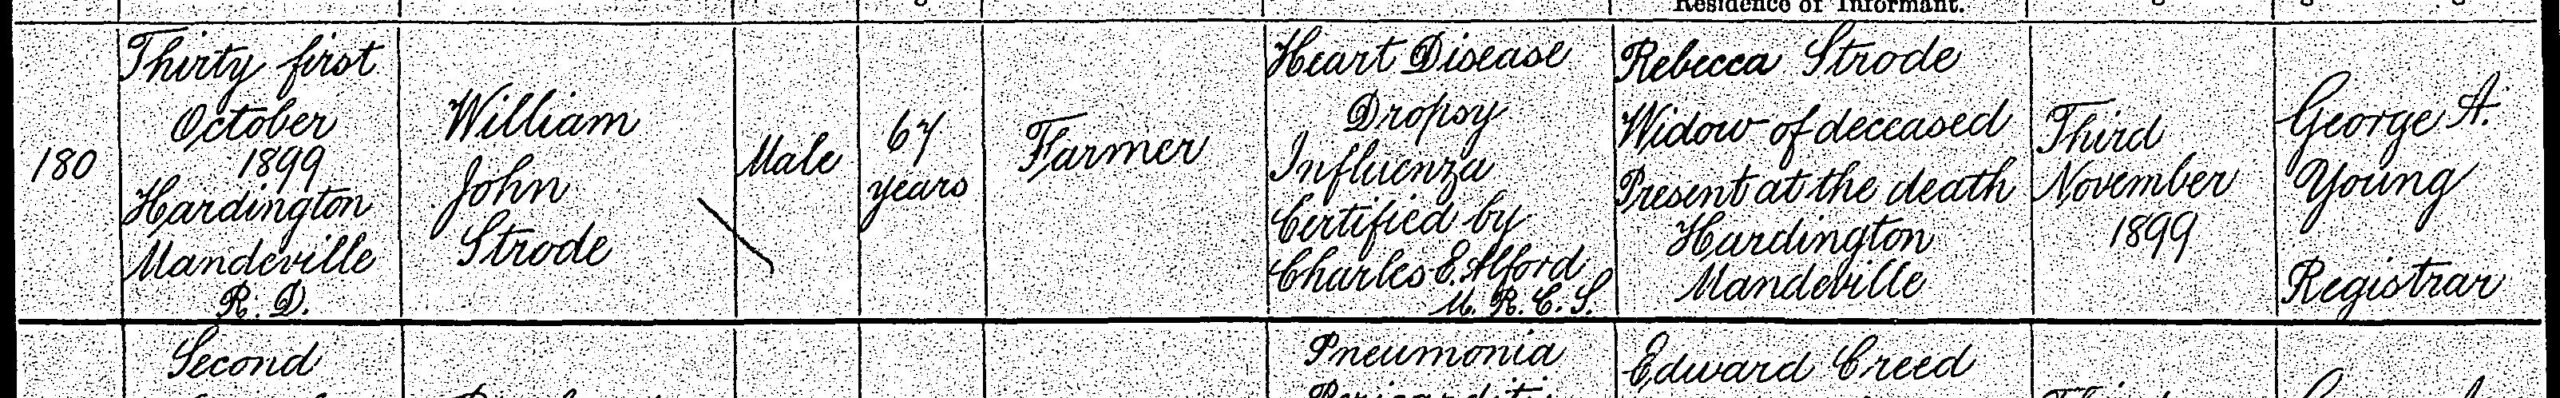 Residence of Informant.
180
Thirty first
October
1899
Hardington
Mandeville
R. D.
William
John
Strode
Male
67
years
Farmer
Heart Disease
Dropsy
Influenza
Certified by
Charles E. Alford
M. R. C. S.
Rebecca Strode
Widow of deceased
Present at the death
Hardington
Mandeville
Third
November
1899
George A.
Young
Registrar
Second
Pneumonia
Edward Creed